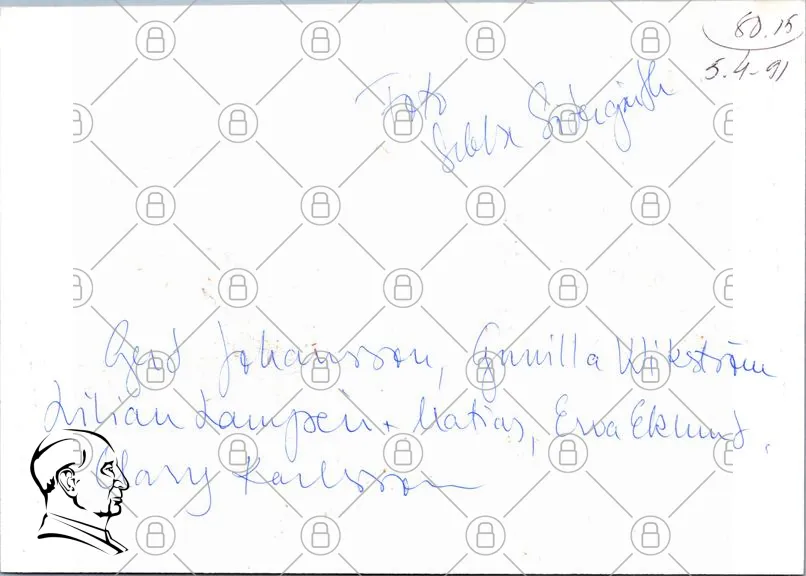 80.15
5.4-91
Foto
Gerd Johansson, Gunilla Wikström
Lilian Lampen + Matias, Erva Eklund,
Mary Karlsson